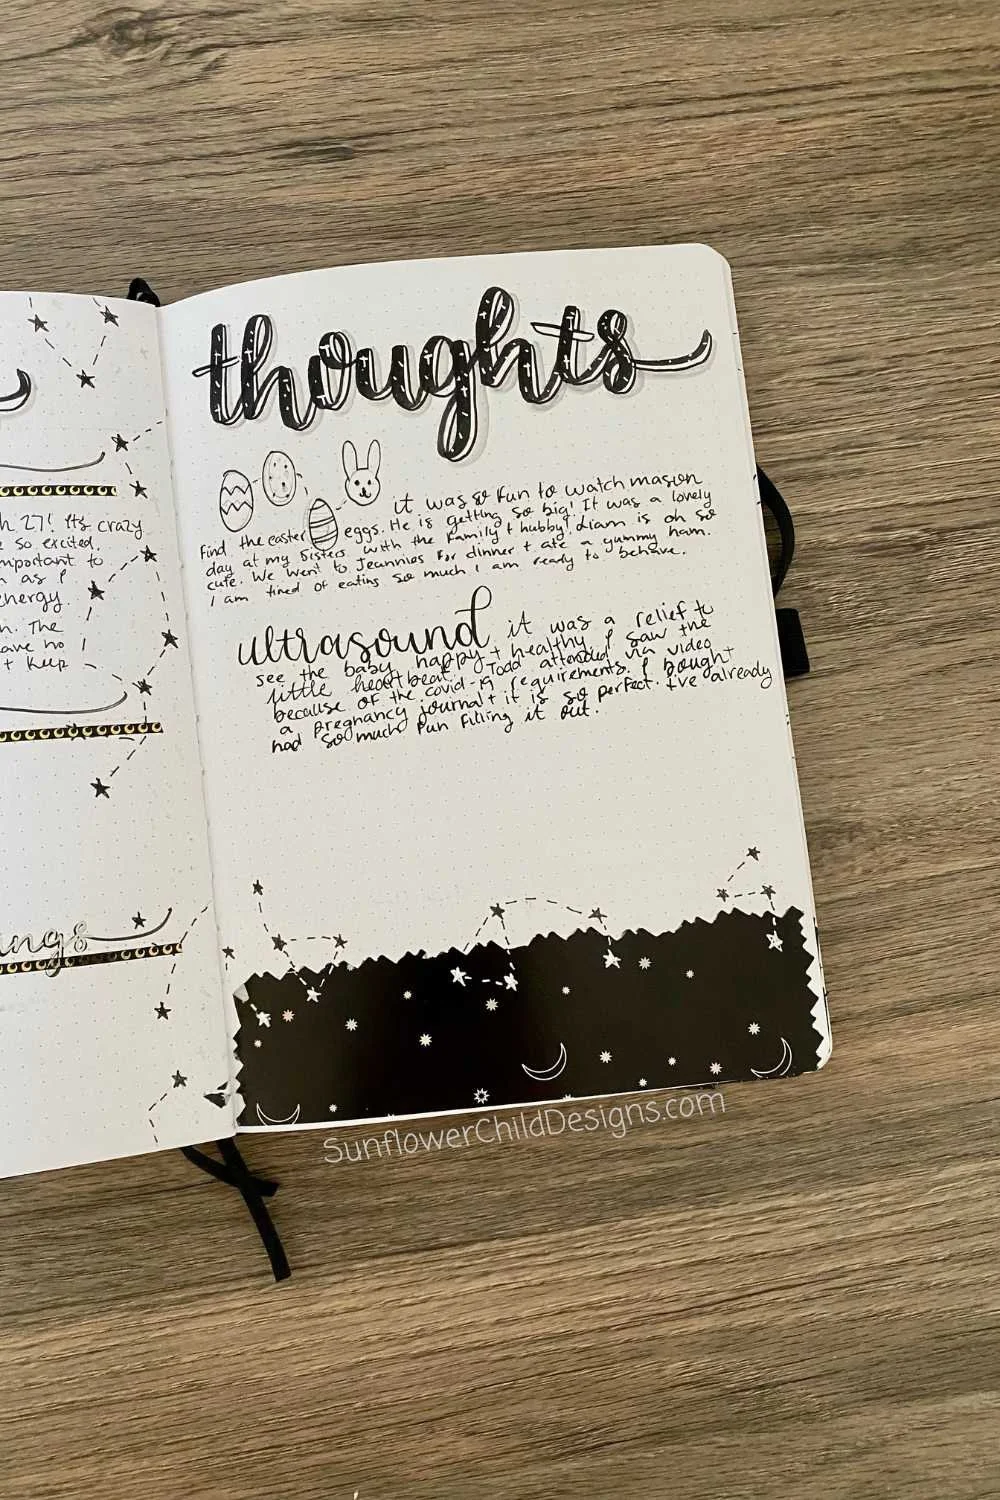 h 27! Its crazy
e so excited.
mportant to
m as I
energy.
n. The
ave no
t keep
ings
thoughts
it was so fun to watch mason
find the easter eggs. He is getting so big! It was a lovely
day at my sisters with the family + hubby! Liam is oh so
cute. We went to Jeannies for dinner + ate a yummy ham.
I am tired of eating so much I am ready to behave.
ultrasound it was a relief to
see the baby happy + healthy I saw the
little heartbeat. Todd attended via video
because of the covid-19 requirements. I bought
a pregnancy journal + it is so perfect. I've already
had so much fun filling it out.
SunflowerChildDesigns.com